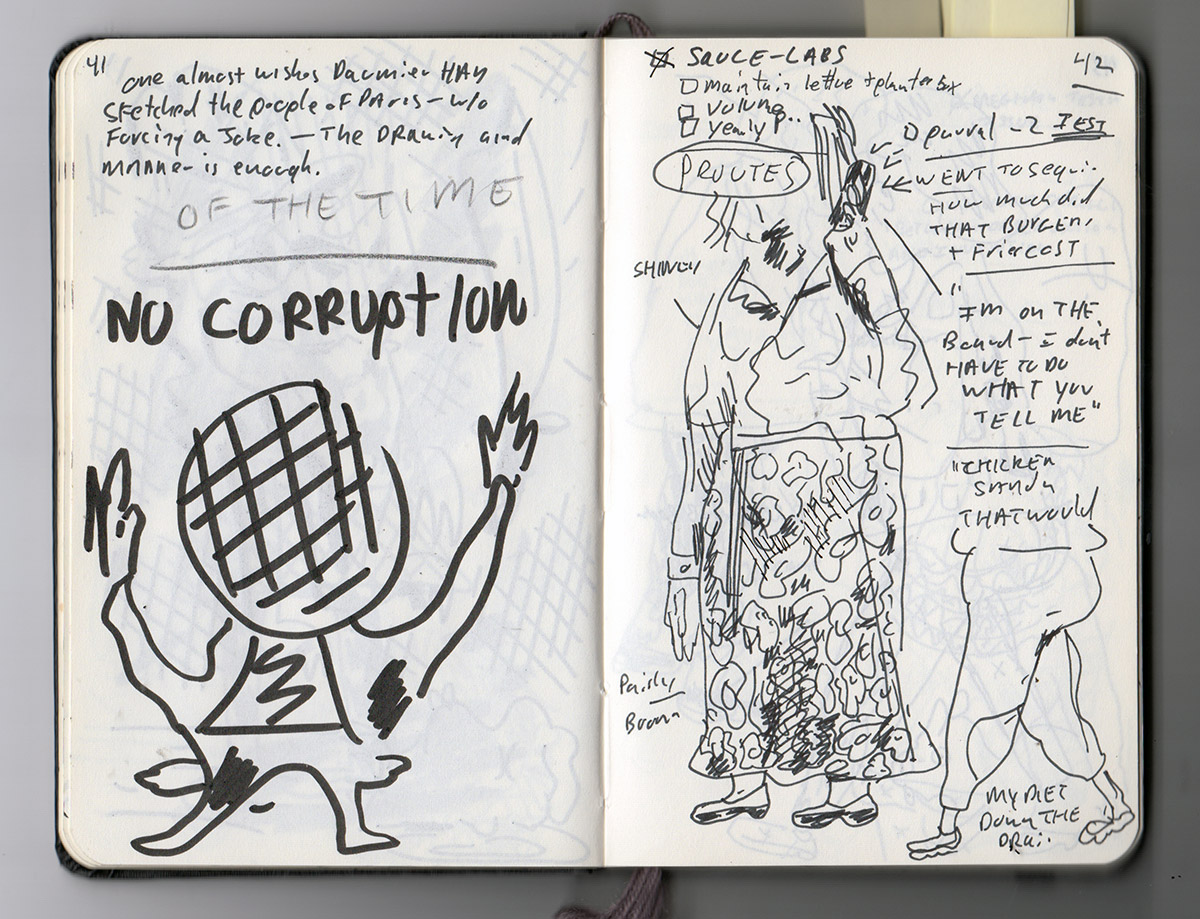 41
one almost wishes Daumier HAD
sketched the people of PARIS - w/o
Forcing a Joke. — The DRAWing and
MANNER is enough.
OF THE TIME
NO CORRUPTION
42
SAUCE-LABS
maintain lettuce + planter box
Volume..
yearly P..
- 2 TEST
PROUTES
WENT TO
How much did
THAT BURGER
+ Frier COST
SHINEY
"I'm on THE
Board - I don't
HAVE TO DO
WHAT YOU
TELL ME"
"CHICKEN
THAT would
Paisley
Brown
MY DIET
DOWN THE
DRAi.